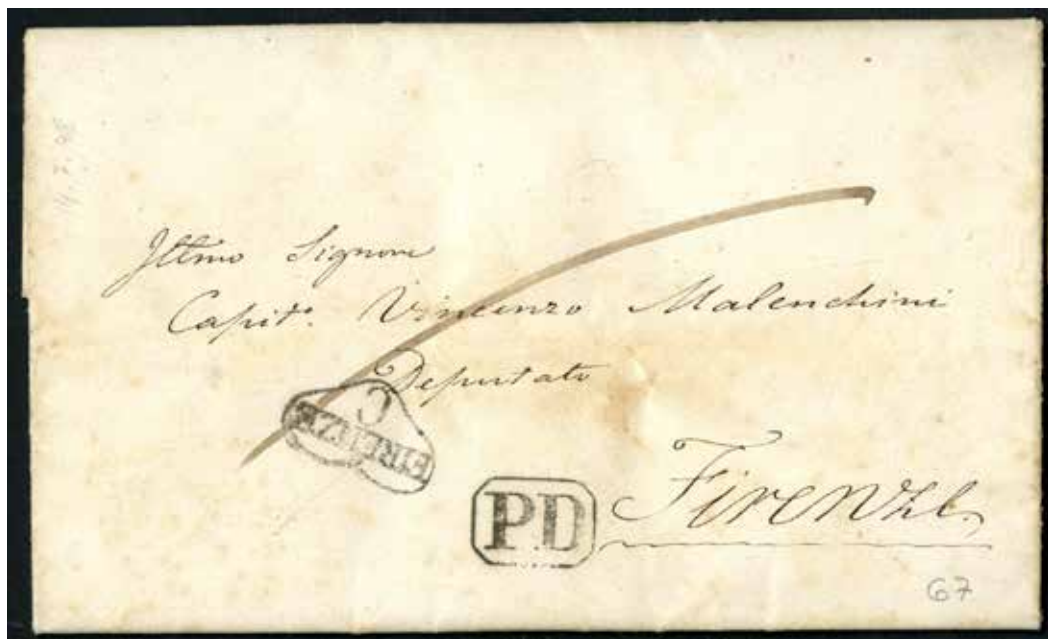 Illmo Signore
Capit.º Vincenzo Malenchini
Deputato
C
FIRENZE
PD
Firenze
67